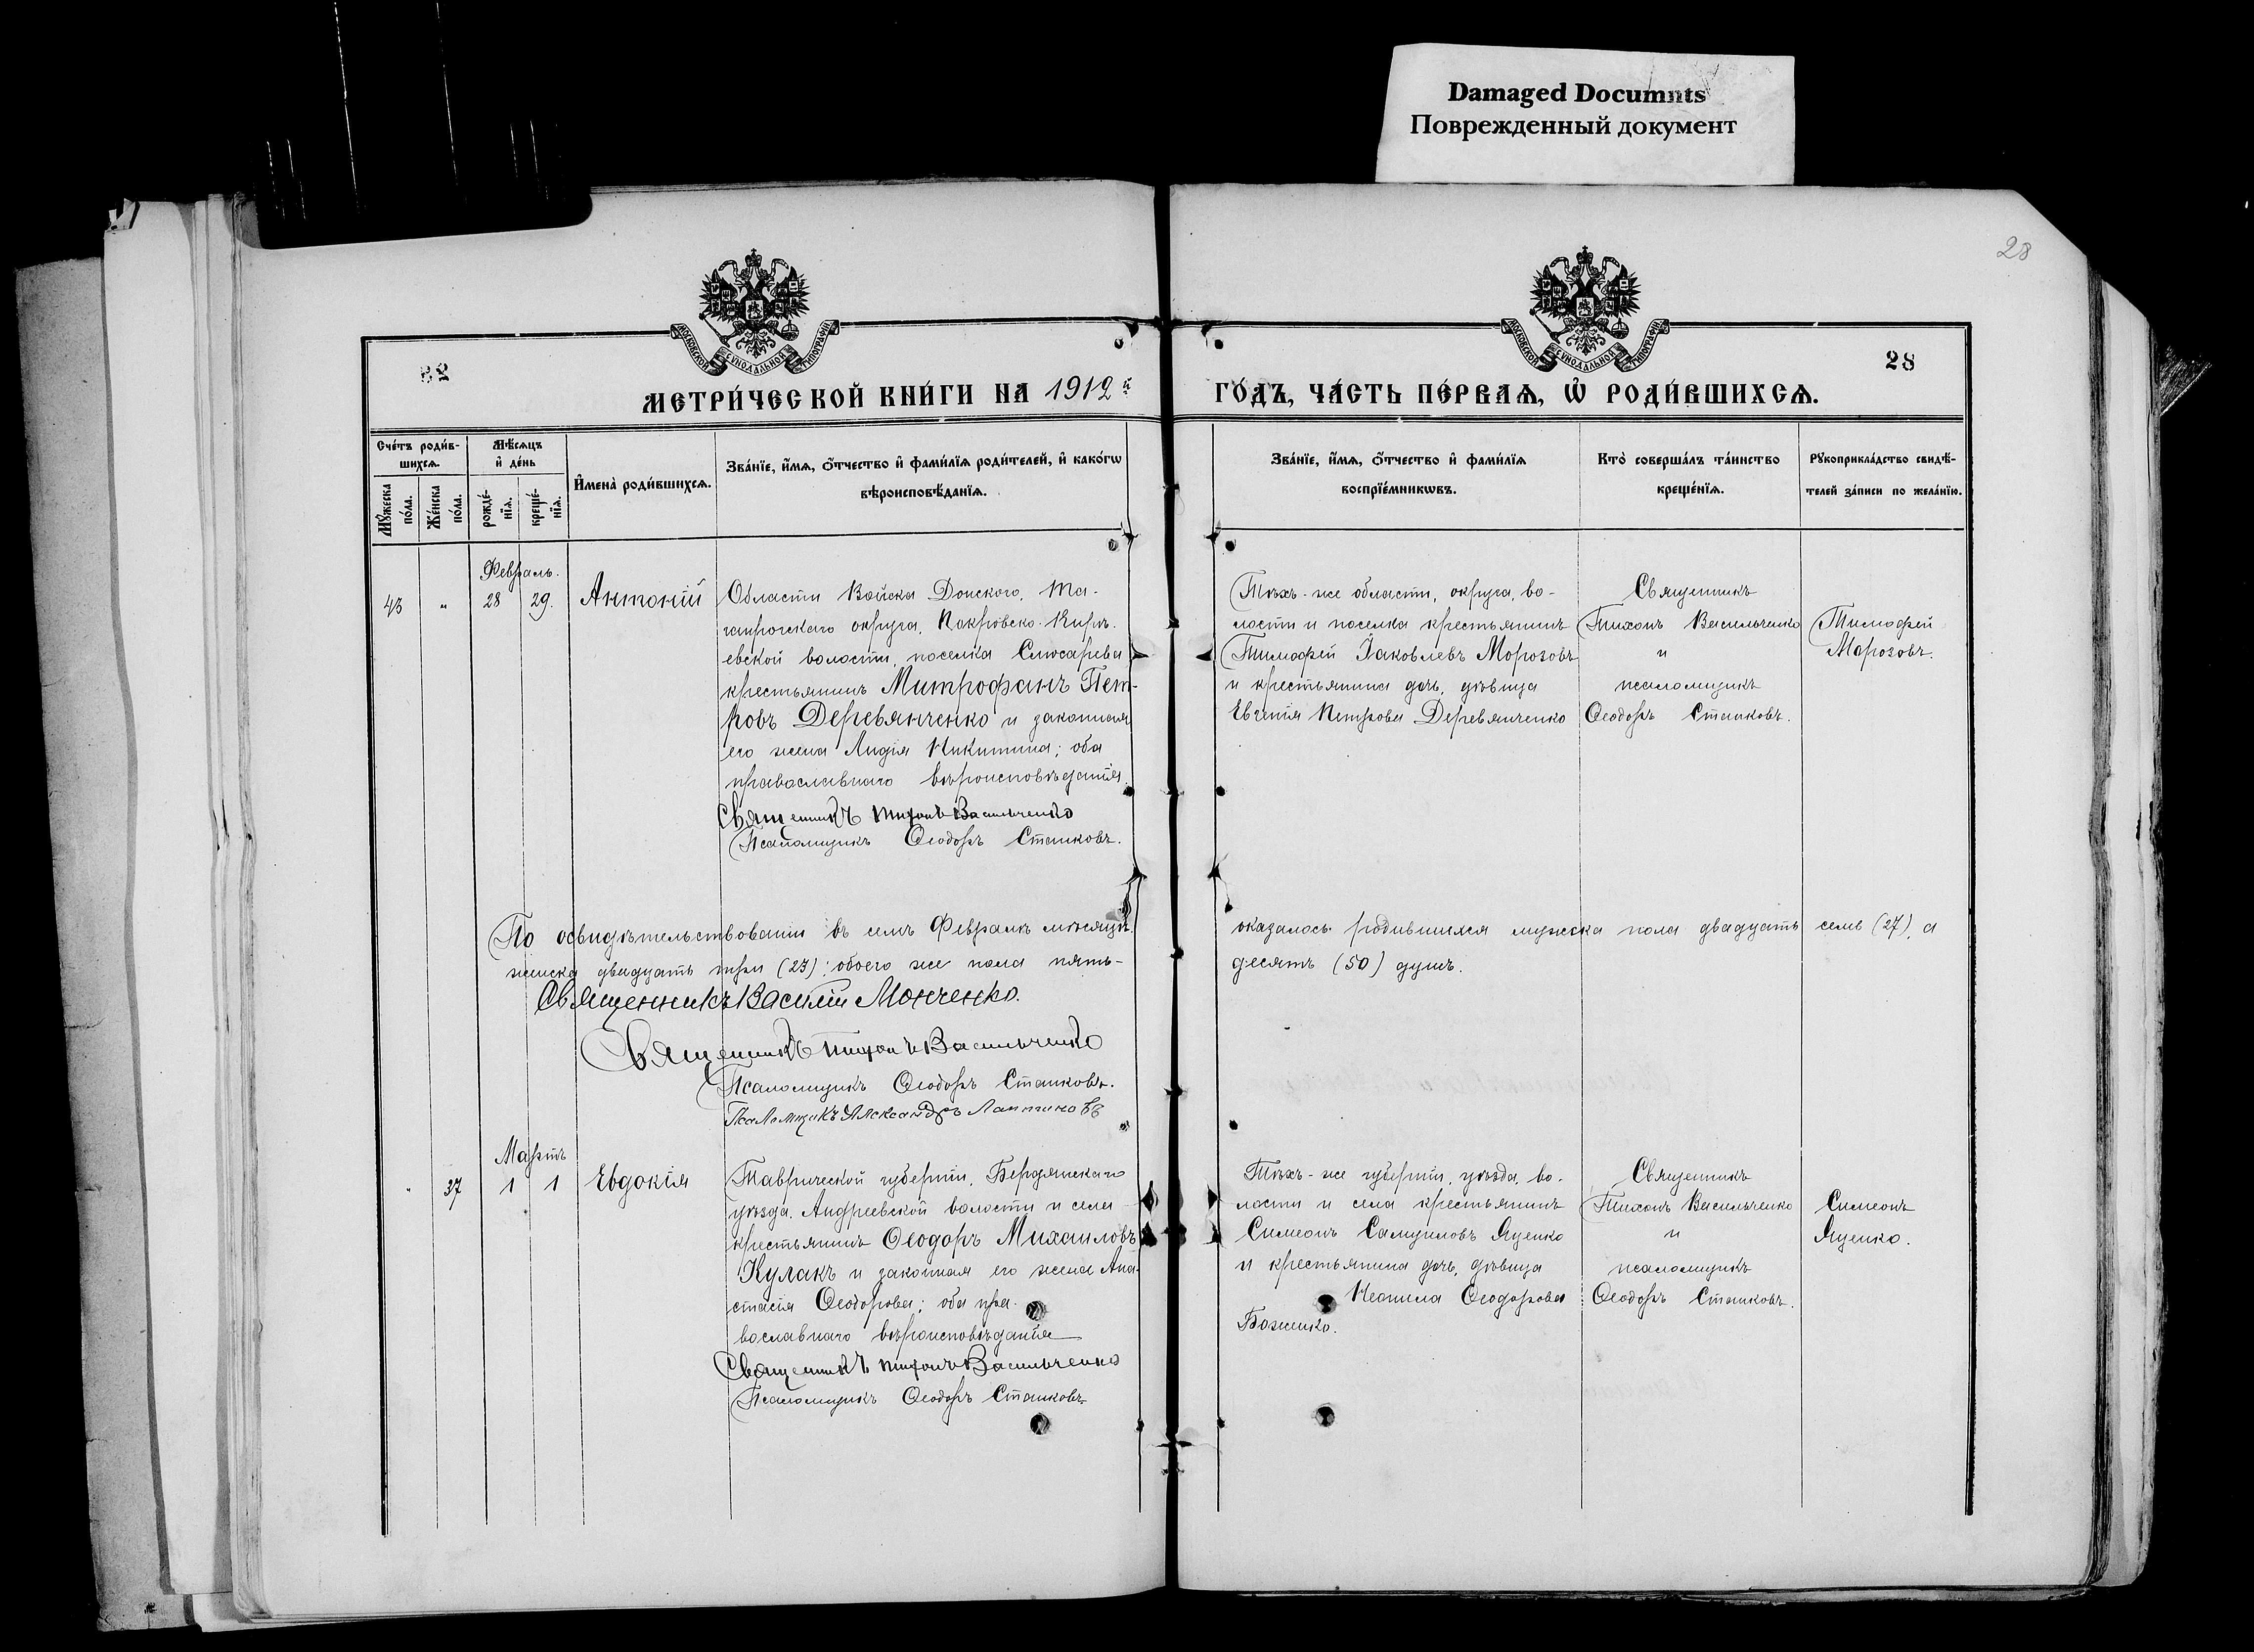 Damaged Documnts
Поврежденный документ
28
МОСКОВСКОЙ СУНОДАЛЬНОЙ ТИПОГРАФІИ
МОСКОВСКОЙ СУНОДАЛЬНОЙ ТИПОГРАФІИ
28
МЕТРИ́ЧЕСКОЙ КНИ́ГИ НА 1912й
ГО́ДЪ, ЧА́СТЬ ПЕ́РВАѦ, Ѡ҆ РОДИ́ВШИХСѦ.
Сче́тъ роди́в-
шихсѧ.
Мꙋ́жеска по́ла.
Же́нска по́ла.
Мѣ́сѧцъ
и҆ де́нь
рожде́-
нїѧ.
креще́-
нїѧ.
И҆мена̀ роди́вшихсѧ.
Зва́нїе, и҆́мѧ, ѻ҆́тчество и҆ фами́лїѧ роди́телей, и҆ како́гѡ
вѣроисповѣ́данїѧ.
Зва́нїе, и҆́мѧ, ѻ҆́тчество и҆ фами́лїѧ
воспрїе́мникѡвъ.
Кто̀ соверша́лъ та́инство
креще́нїѧ.
Рꙋкоприкла́дство свидѣ́-
телей за́писи по жела́нїю.
Февраль.
43 " 28 29. Антоній
Области Войска Донского, Та-
ганрогскаго округа, Покровско-Кирѣ-
евской волости, поселка Слюсарева
крестьянинъ Митрофанъ Пет-
ровъ Деревянченко и законная
его жена Лидія Никитина; оба
православнаго вѣроисповѣданія.
Священникъ Тихонъ Васильченко
Псаломщикъ Ѳеодоръ Станковъ.
Тѣхъ-же области, округа, во-
лости и поселка крестьянинъ
Тимофей Іаковлевъ Морозовъ
и крестьянина дочь, дѣвица
Евгенія Петрова Деревянченко
Священникъ
Тихонъ Васильченко
и
псаломщикъ
Ѳеодоръ Станковъ.
Тимофей
Морозовъ.
По освидѣтельствованіи въ семъ Февралѣ мѣсяцѣ оказалось родившихся мужска пола двадцать семь (27), а
женска двадцать три (23); обоего же пола пять-
десятъ (50) душъ.
Священникъ Василій Монченко.
Священникъ Тихонъ Васильченко
Псаломщикъ Ѳеодоръ Станковъ.
Псаломщикъ Александръ
Мартъ
" 37 1 1 Евдокія
Таврической губерніи, Бердянскаго
уѣзда, Андреевской волости и села
крестьянинъ Ѳеодоръ Михаиловъ
Кулакъ и законная его жена Ана-
стасія Ѳеодорова; оба пра-
вославнаго вѣроисповѣданія
Священникъ Тихонъ Васильченко
Псаломщикъ Ѳеодоръ Станковъ
Тѣхъ-же губерніи, уѣзда, во-
лости и села крестьянинъ
Симеонъ Самуиловъ Яценко
и крестьянина дочь, дѣвица
Неонила Ѳеодорова
Боженко.
Священникъ
Тихонъ Васильченко
и
псаломщикъ
Ѳеодоръ Станковъ.
Симеонъ
Яценко.